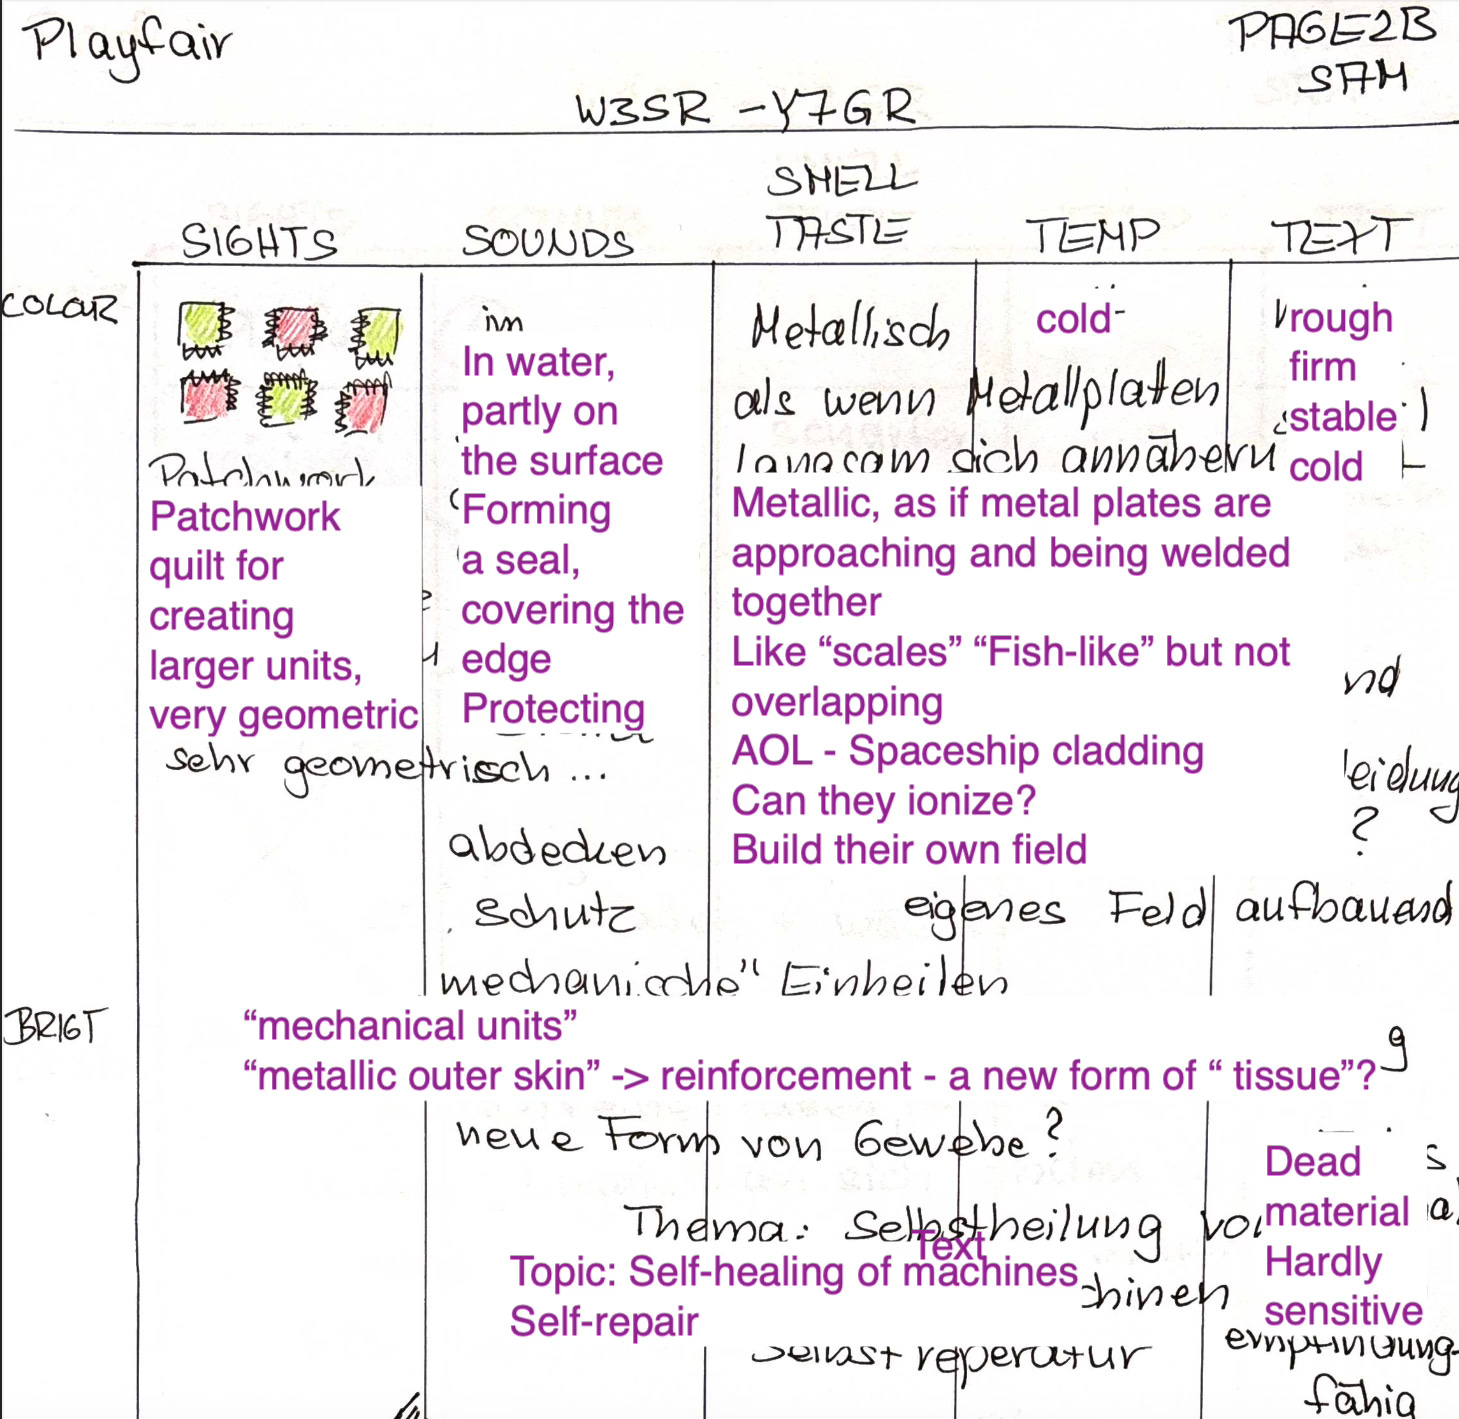 Playfair
PAGE2B
SAM
W3SR - Y7GR
SIGHTS
SOUNDS
SMELL
TASTE
TEMP
TEXT
COLOUR
Patchwork
Patchwork
quilt for
creating
larger units,
very geometric
sehr geometrisch ...
im
In water,
partly on
the surface
Forming
a seal,
covering the
edge
Protecting
abdecken
schutz
Metallisch
als wenn Metallplatten
langsam sich annähern
cold
rough
firm
stable
cold
Metallic, as if metal plates are
approaching and being welded
together
Like “scales” “Fish-like” but not
overlapping
AOL - Spaceship cladding
Can they ionize?
Build their own field
nd
leidung
?
eigenes Feld aufbauend
mechanische" Einheiten
BRIGT
“mechanical units”
“metallic outer skin” -> reinforcement - a new form of “ tissue”?
g
neue Form von Gewebe?
Thema: Selbstheilung vo
Text
Topic: Self-healing of machines
chinen
Self-repair
Selbstreperatur
Dead
material
Hardly
sensitive
empfindung-
fähig